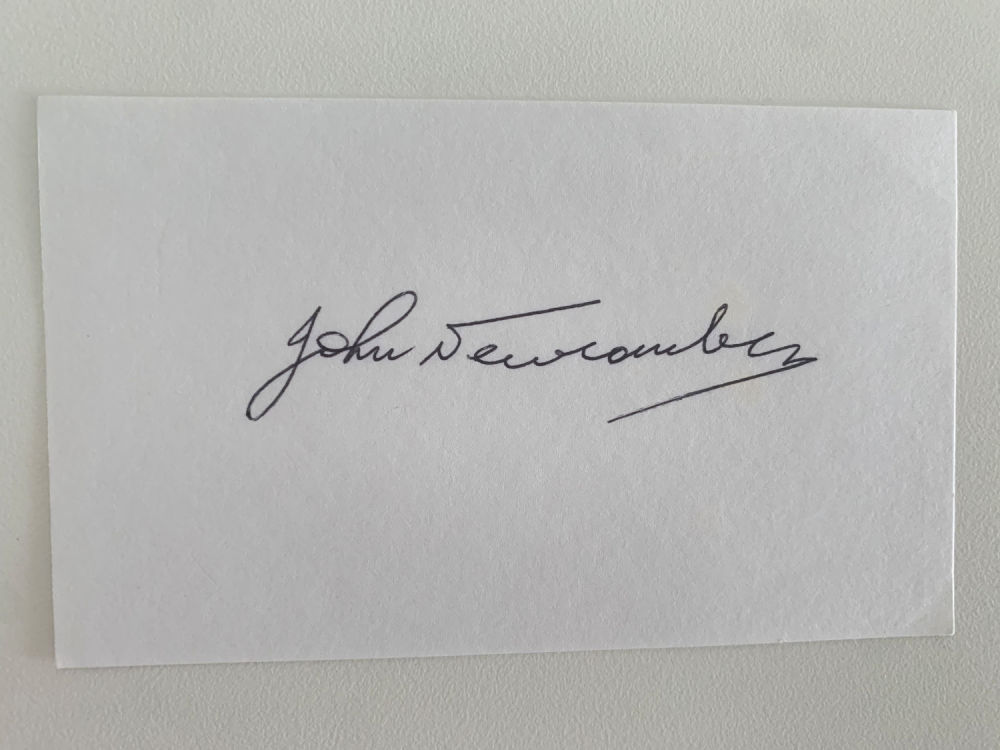 John Newcombe